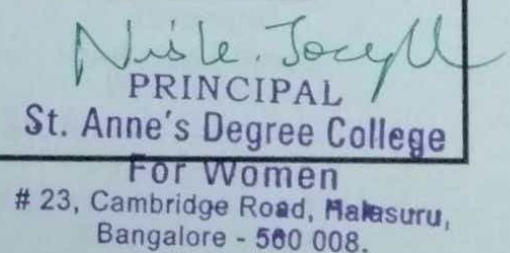 PRINCIPAL
St. Anne's Degree College
For Women
# 23, Cambridge Road, Halasuru,
Bangalore - 560 008.